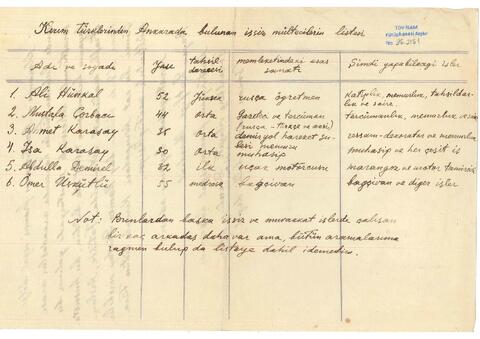 Kırım türklerinden Ankarada bulunan issiz mültecilerin listesi
TDV İSAM
Kütüphanesi Arşivi
No
Adı ve soyadı Yaşe tahsil derecesi memleketindeki esas sanatı Şimdi yapabilecegi isler
1. Ali Hünkal 52 Yüksek rusça ögretmen katiplik, memurluk, tahsildar-
lik ve saire.
2. Mustafa Çorbacı 44 orta Gazeteci ve tercüman tercümanlık, memurluk ve saire
(rusça - Türkçe ve aksi)
3. Ahmet Karasay 35 orta demir yol hareket şu- ressam-dekorator ve memurluk
besi memuru
4. İsa Karasay 30 orta muhasip muhasip ve her çesit is
5. Abdulla Demirel 32 ilk uçak motorcusu marangoz ve motor tamircisi
6. Ömer 55 medrese bagcıvan bagçıvan ve diger isler
Not: Bunlardan başka issiz ve muvakkat islerde çalısan
bir kaç arkadaş daha var ama, bütün aramalarıma
ragmen bulup da listeye dahil edemedim.